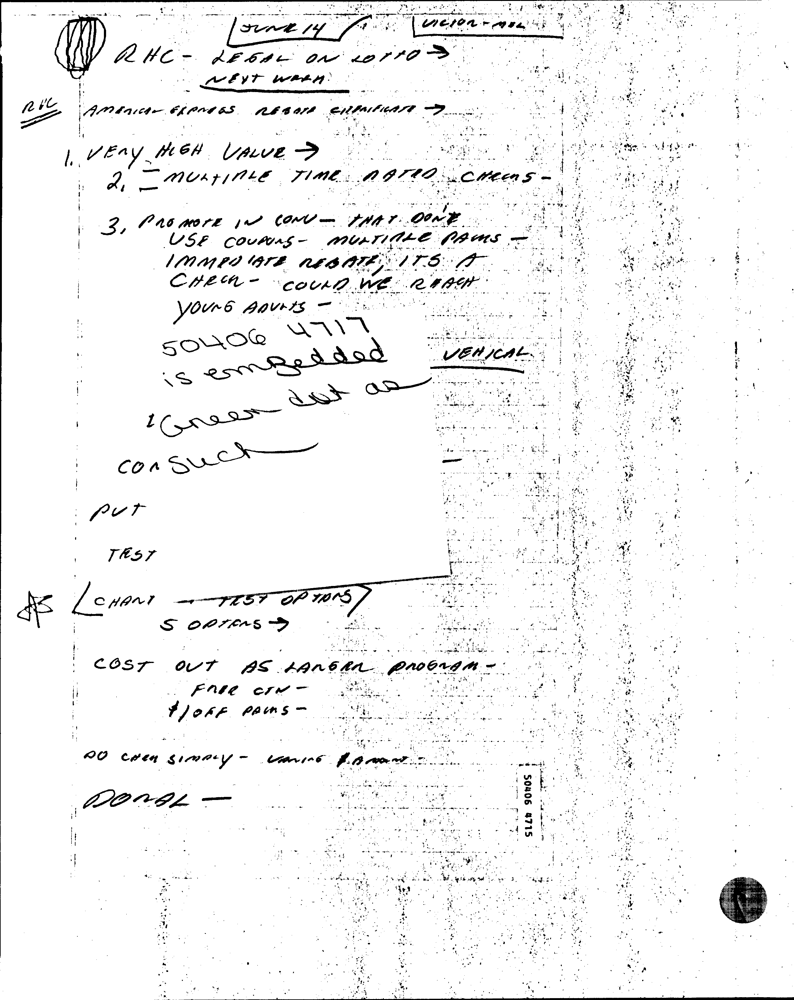 JUNE 14
RHC - LEGAL ON LOTTO →
NEXT WEEK
RHC
AMERICAN EXPRESS REBATE CERTIFICATE →
1. VERY HIGH VALUE →
2. MULTIPLE TIME DATED CHECKS -
3. PROMOTE IN CONV - THAT DON'T
USE COUPONS - MULTIPLE PACKS -
IMMEDIATE REBATE, ITS A
CHECK - COULD WE REACH
YOUNG ADULTS -
50406 4717
is embedded
VEHICAL
Green dot as
such
CON
PUT
TEST
CHART - TEST OPTIONS
5 OPTIONS →
COST OUT AS LARGER PROGRAM -
FREE CTN -
$1 OFF PACKS -
DO CHECK SIMPLY - VARYING $ AMOUNT -
DORAL -
50406 4715